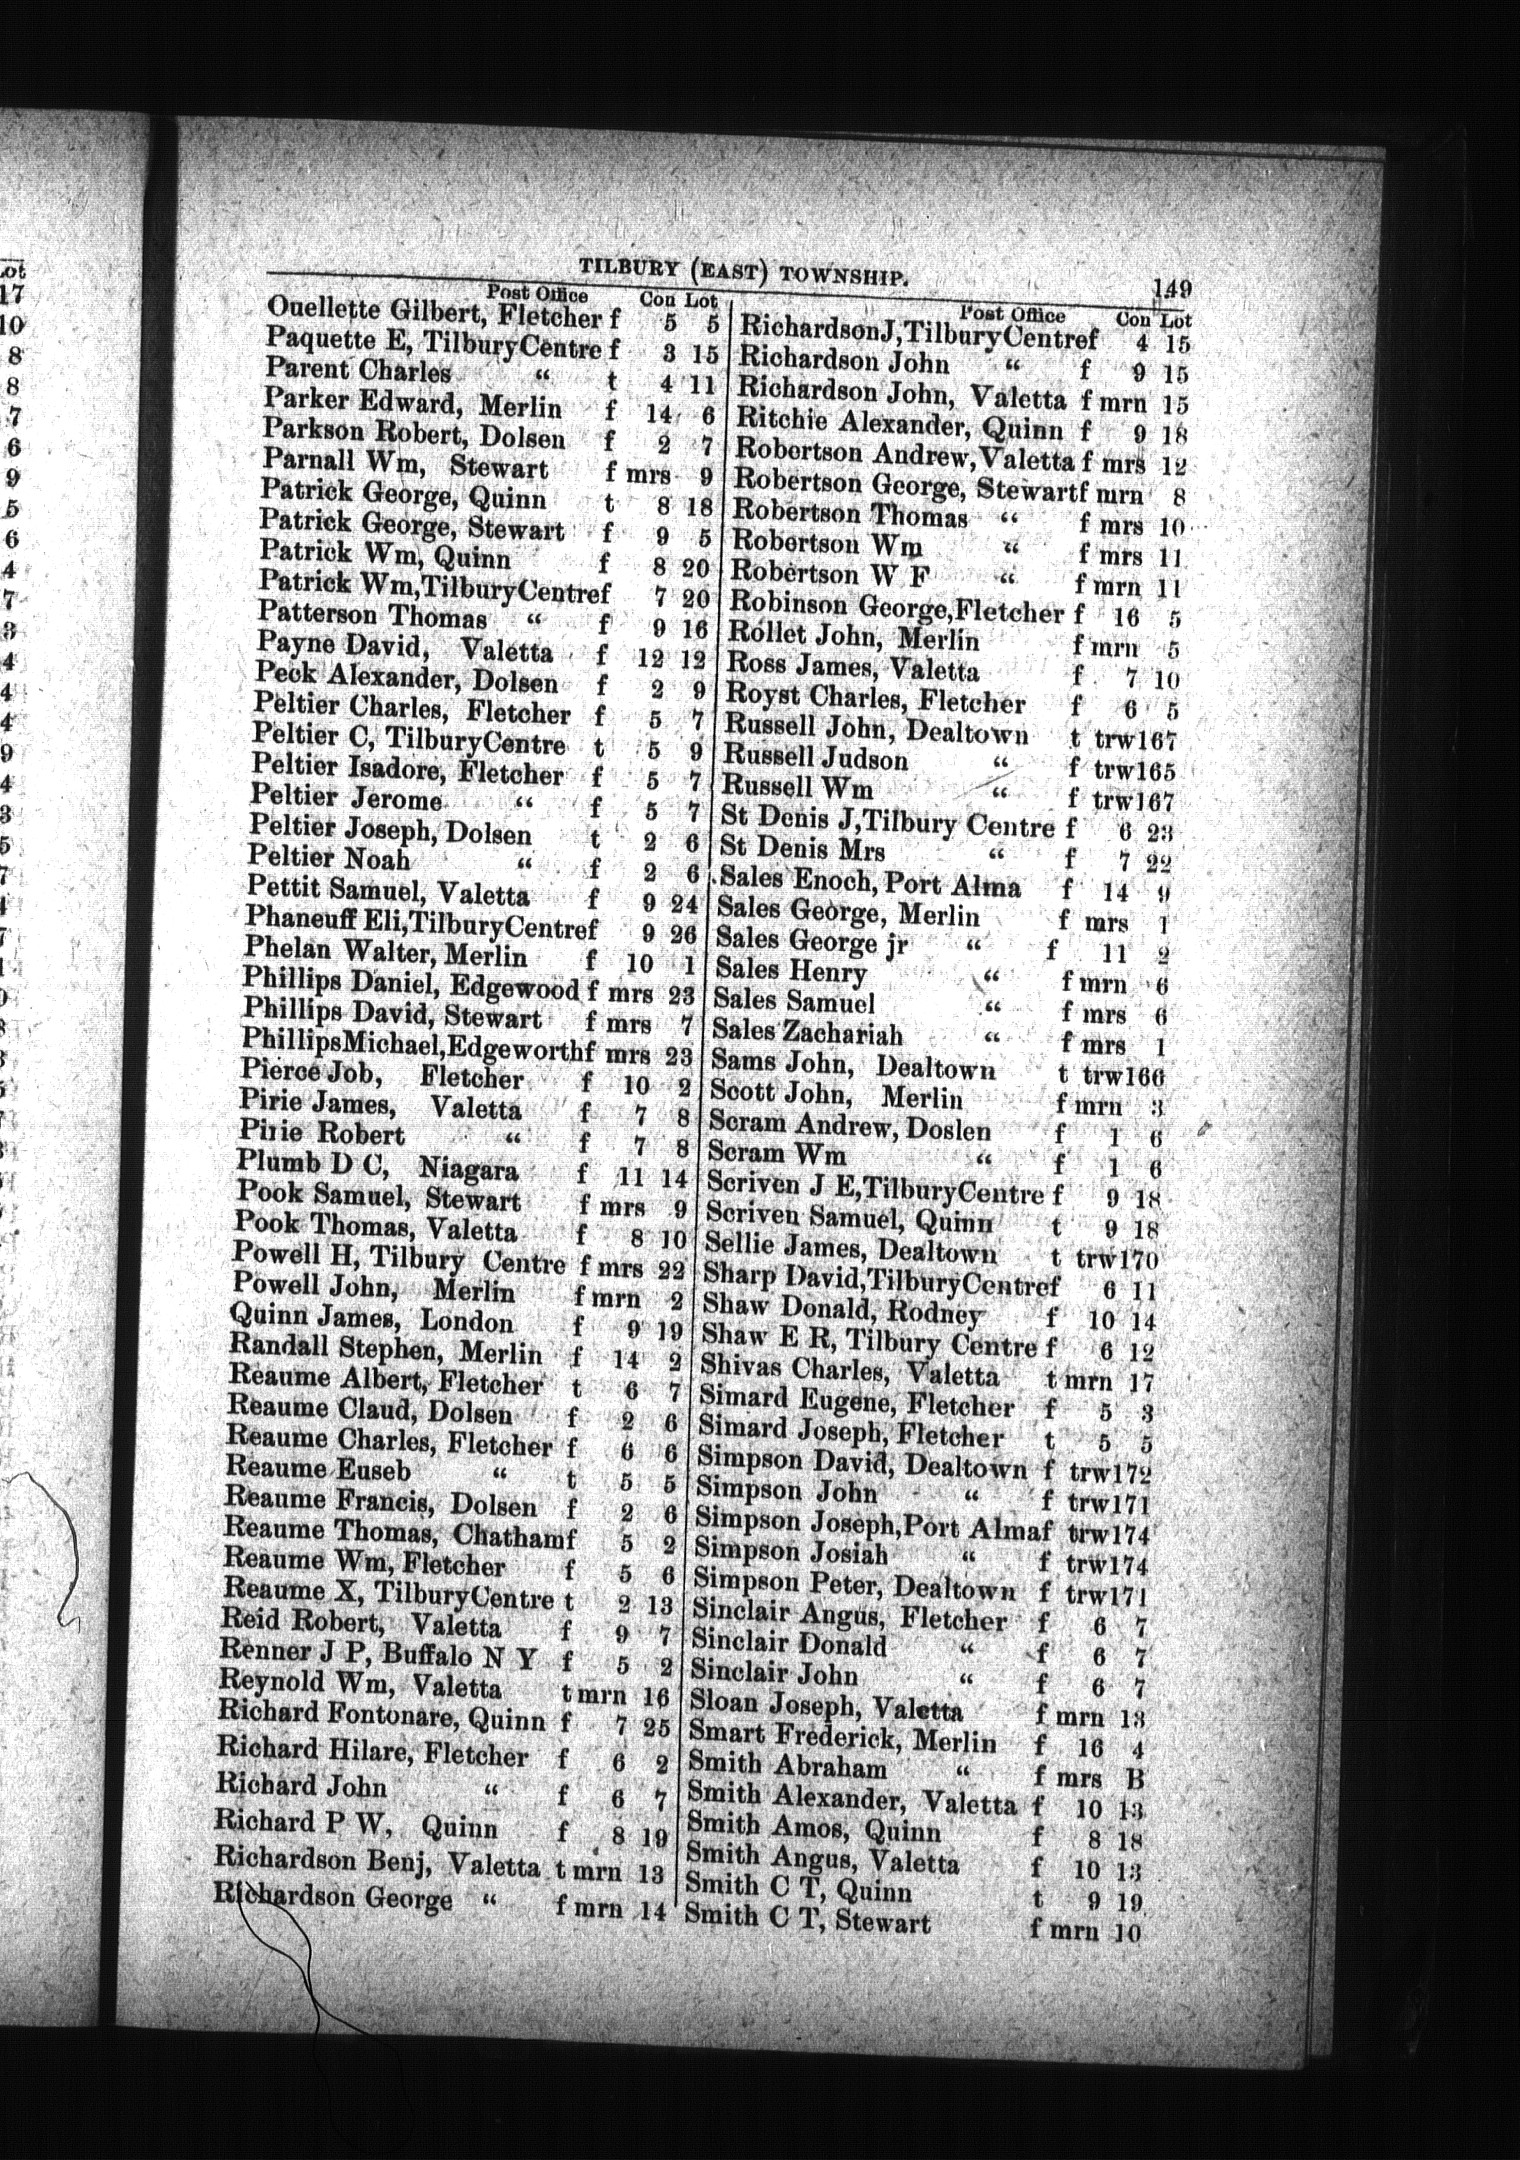 TILBURY (EAST) TOWNSHIP. 149
Post Office Con Lot
Ouellette Gilbert, Fletcher f 5 5
Paquette E, TilburyCentre f 3 15
Parent Charles “ t 4 11
Parker Edward, Merlin f 14 6
Parkson Robert, Dolsen f 2 7
Parnall Wm, Stewart f mrs 9
Patrick George, Quinn t 8 18
Patrick George, Stewart f 9 5
Patrick Wm, Quinn f 8 20
Patrick Wm,TilburyCentref 7 20
Patterson Thomas “ f 9 16
Payne David, Valetta f 12 12
Peck Alexander, Dolsen f 2 9
Peltier Charles, Fletcher f 5 7
Peltier C, TilburyCentre t 5 9
Peltier Isadore, Fletcher f 5 7
Peltier Jerome “ f 5 7
Peltier Joseph, Dolsen t 2 6
Peltier Noah “ f 2 6
Pettit Samuel, Valetta f 9 24
Phaneuff Eli,TilburyCentref 9 26
Phelan Walter, Merlin f 10 1
Phillips Daniel, Edgewood f mrs 23
Phillips David, Stewart f mrs 7
PhillipsMichael,Edgeworthf mrs 23
Pierce Job, Fletcher f 10 2
Pirie James, Valetta f 7 8
Pirie Robert “ f 7 8
Plumb D C, Niagara f 11 14
Pook Samuel, Stewart f mrs 9
Pook Thomas, Valetta f 8 10
Powell H, Tilbury Centre f mrs 22
Powell John, Merlin f mrn 2
Quinn James, London f 9 19
Randall Stephen, Merlin f 14 2
Reaume Albert, Fletcher t 6 7
Reaume Claud, Dolsen f 2 6
Reaume Charles, Fletcher f 6 6
Reaume Euseb “ t 5 5
Reaume Francis, Dolsen f 2 6
Reaume Thomas, Chathamf 5 2
Reaume Wm, Fletcher f 5 6
Reaume X, TilburyCentre t 2 13
Reid Robert, Valetta f 9 7
Renner J P, Buffalo N Y f 5 2
Reynold Wm, Valetta t mrn 16
Richard Fontonare, Quinn f 7 25
Richard Hilare, Fletcher f 6 2
Richard John “ f 6 7
Richard P W, Quinn f 8 19
Richardson Benj, Valetta t mrn 13
Richardson George “ f mrn 14
Post Office Con Lot
RichardsonJ,TilburyCentref 4 15
Richardson John “ f 9 15
Richardson John, Valetta f mrn 15
Ritchie Alexander, Quinn f 9 18
Robertson Andrew,Valetta f mrs 12
Robertson George, Stewartf mrn 8
Robertson Thomas “ f mrs 10
Robertson Wm “ f mrs 11
Robertson W F “ f mrn 11
Robinson George,Fletcher f 16 5
Rollet John, Merlin f mrn 5
Ross James, Valetta f 7 10
Royst Charles, Fletcher f 6 5
Russell John, Dealtown t trw167
Russell Judson “ f trw165
Russell Wm “ f trw167
St Denis J,Tilbury Centre f 6 23
St Denis Mrs “ f 7 22
Sales Enoch, Port Alma f 14 9
Sales George, Merlin f mrs 1
Sales George jr “ f 11 2
Sales Henry “ f mrn 6
Sales Samuel “ f mrs 6
Sales Zachariah “ f mrs 1
Sams John, Dealtown t trw166
Scott John, Merlin f mrn 3
Scram Andrew, Doslen f 1 6
Scram Wm “ f 1 6
Scriven J E,TilburyCentre f 9 18
Scriven Samuel, Quinn t 9 18
Sellie James, Dealtown t trw170
Sharp David,TilburyCentref 6 11
Shaw Donald, Rodney f 10 14
Shaw E R, Tilbury Centre f 6 12
Shivas Charles, Valetta t mrn 17
Simard Eugene, Fletcher f 5 3
Simard Joseph, Fletcher t 5 5
Simpson David, Dealtown f trw172
Simpson John “ f trw171
Simpson Joseph,Port Almaf trw174
Simpson Josiah “ f trw174
Simpson Peter, Dealtown f trw171
Sinclair Angus, Fletcher f 6 7
Sinclair Donald “ f 6 7
Sinclair John “ f 6 7
Sloan Joseph, Valetta f mrn 13
Smart Frederick, Merlin f 16 4
Smith Abraham “ f mrs B
Smith Alexander, Valetta f 10 13
Smith Amos, Quinn f 8 18
Smith Angus, Valetta f 10 13
Smith C T, Quinn t 9 19
Smith C T, Stewart f mrn 10